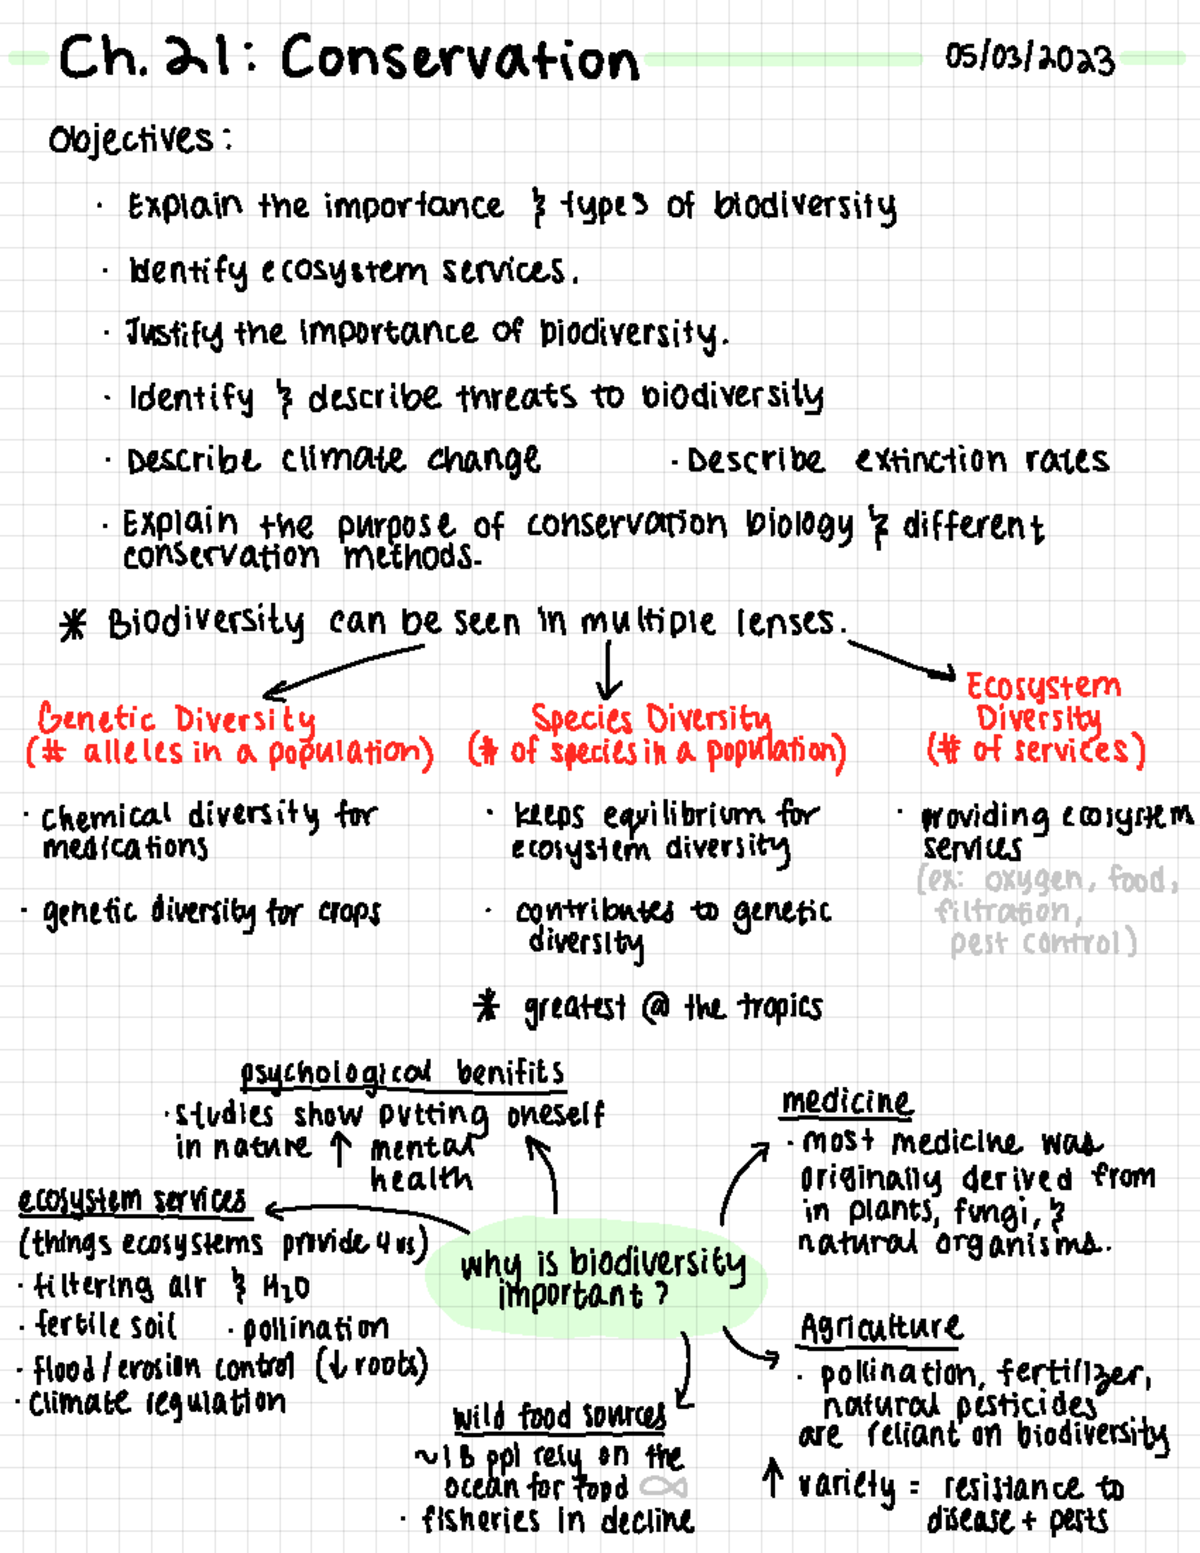 Ch. 21: Conservation 05/03/2023
Objectives:
· Explain the importance & types of biodiversity
· Identify ecosystem services.
· Justify the importance of biodiversity.
· Identify & describe threats to biodiversity
· Describe climate change · Describe extinction rates
· Explain the purpose of conservation biology & different
conservation methods.
* Biodiversity can be seen in multiple lenses.
Genetic Diversity
(# alleles in a population)
· chemical diversity for
medications
· genetic diversity for crops
Species Diversity
(# of species in a population)
· keeps equilibrium for
ecosystem diversity
· contributes to genetic
diversity
* greatest @ the tropics
Ecosystem
Diversity
(# of services)
· providing ecosystem
services
(ex: oxygen, food,
filtration,
pest control)
why is biodiversity
important?
psychological benifits
· studies show putting oneself
in nature ↑ mental
health
medicine
· most medicine was
originally derived from
in plants, fungi, &
natural organisms.
ecosystem services
(things ecosystems provide 4 us)
· filtering air & H₂O
· fertile soil · pollination
· flood/erosion control (↓ roots)
· climate regulation
wild food sources
~1B ppl rely on the
ocean for food
· fisheries in decline
Agriculture
· pollination, fertilizer,
natural pesticides
are reliant on biodiversity
↑ variety = resistance to
disease + pests